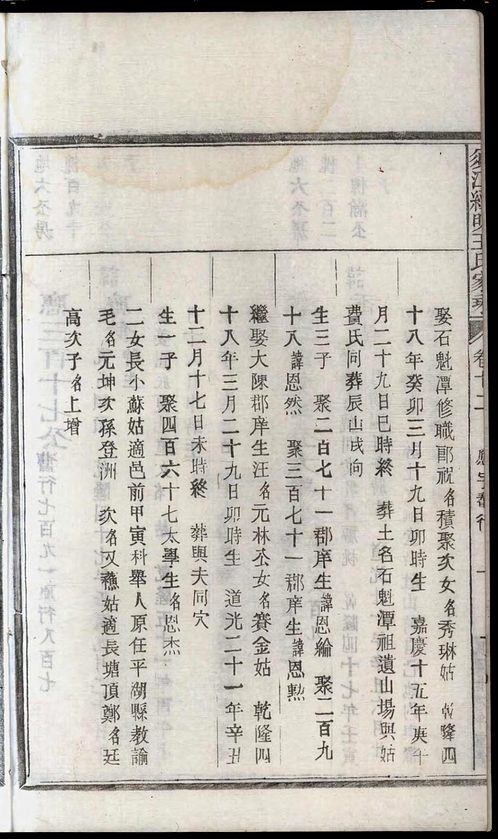 須江繩墅王氏家乘 卷十二
娶石魁潭修職郎祝名積聚次女名秀琳姑 乾隆四
十八年癸卯三月十九日卯時生 嘉慶十五年庚午
月二十九日巳時終 葬土名石魁潭祖遺山場與姑
費氏同葬辰山戌向
生三子 聚二百七十一郡庠生諱恩綸 聚二百九
十八諱恩然 聚三百七十一郡庠生諱恩勲
繼娶大陳郡庠生汪名元林公女名賽金姑 乾隆四
十八年三月二十九日卯時生 道光二十一年辛丑
十二月十七日未時終 葬與夫同穴
生一子 聚四百六十七太學生名恩杰
二女長小蘇姑適邑前甲寅科舉人原任平湖縣教諭
毛名元坤次孫登洲 次名又蘓姑適長塘頂鄭名廷
高次子名上增